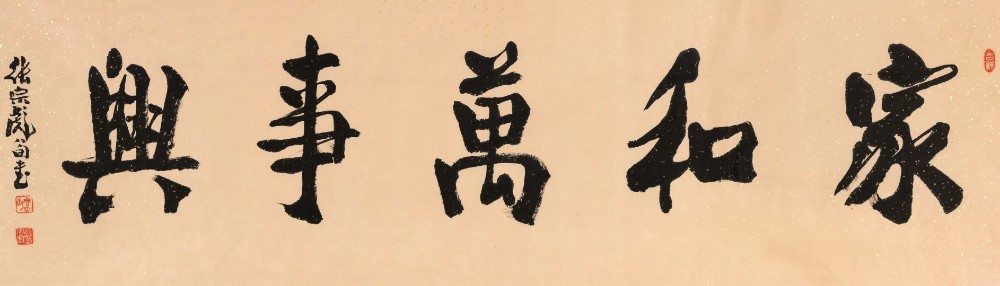 家和萬事興
張宗彪書